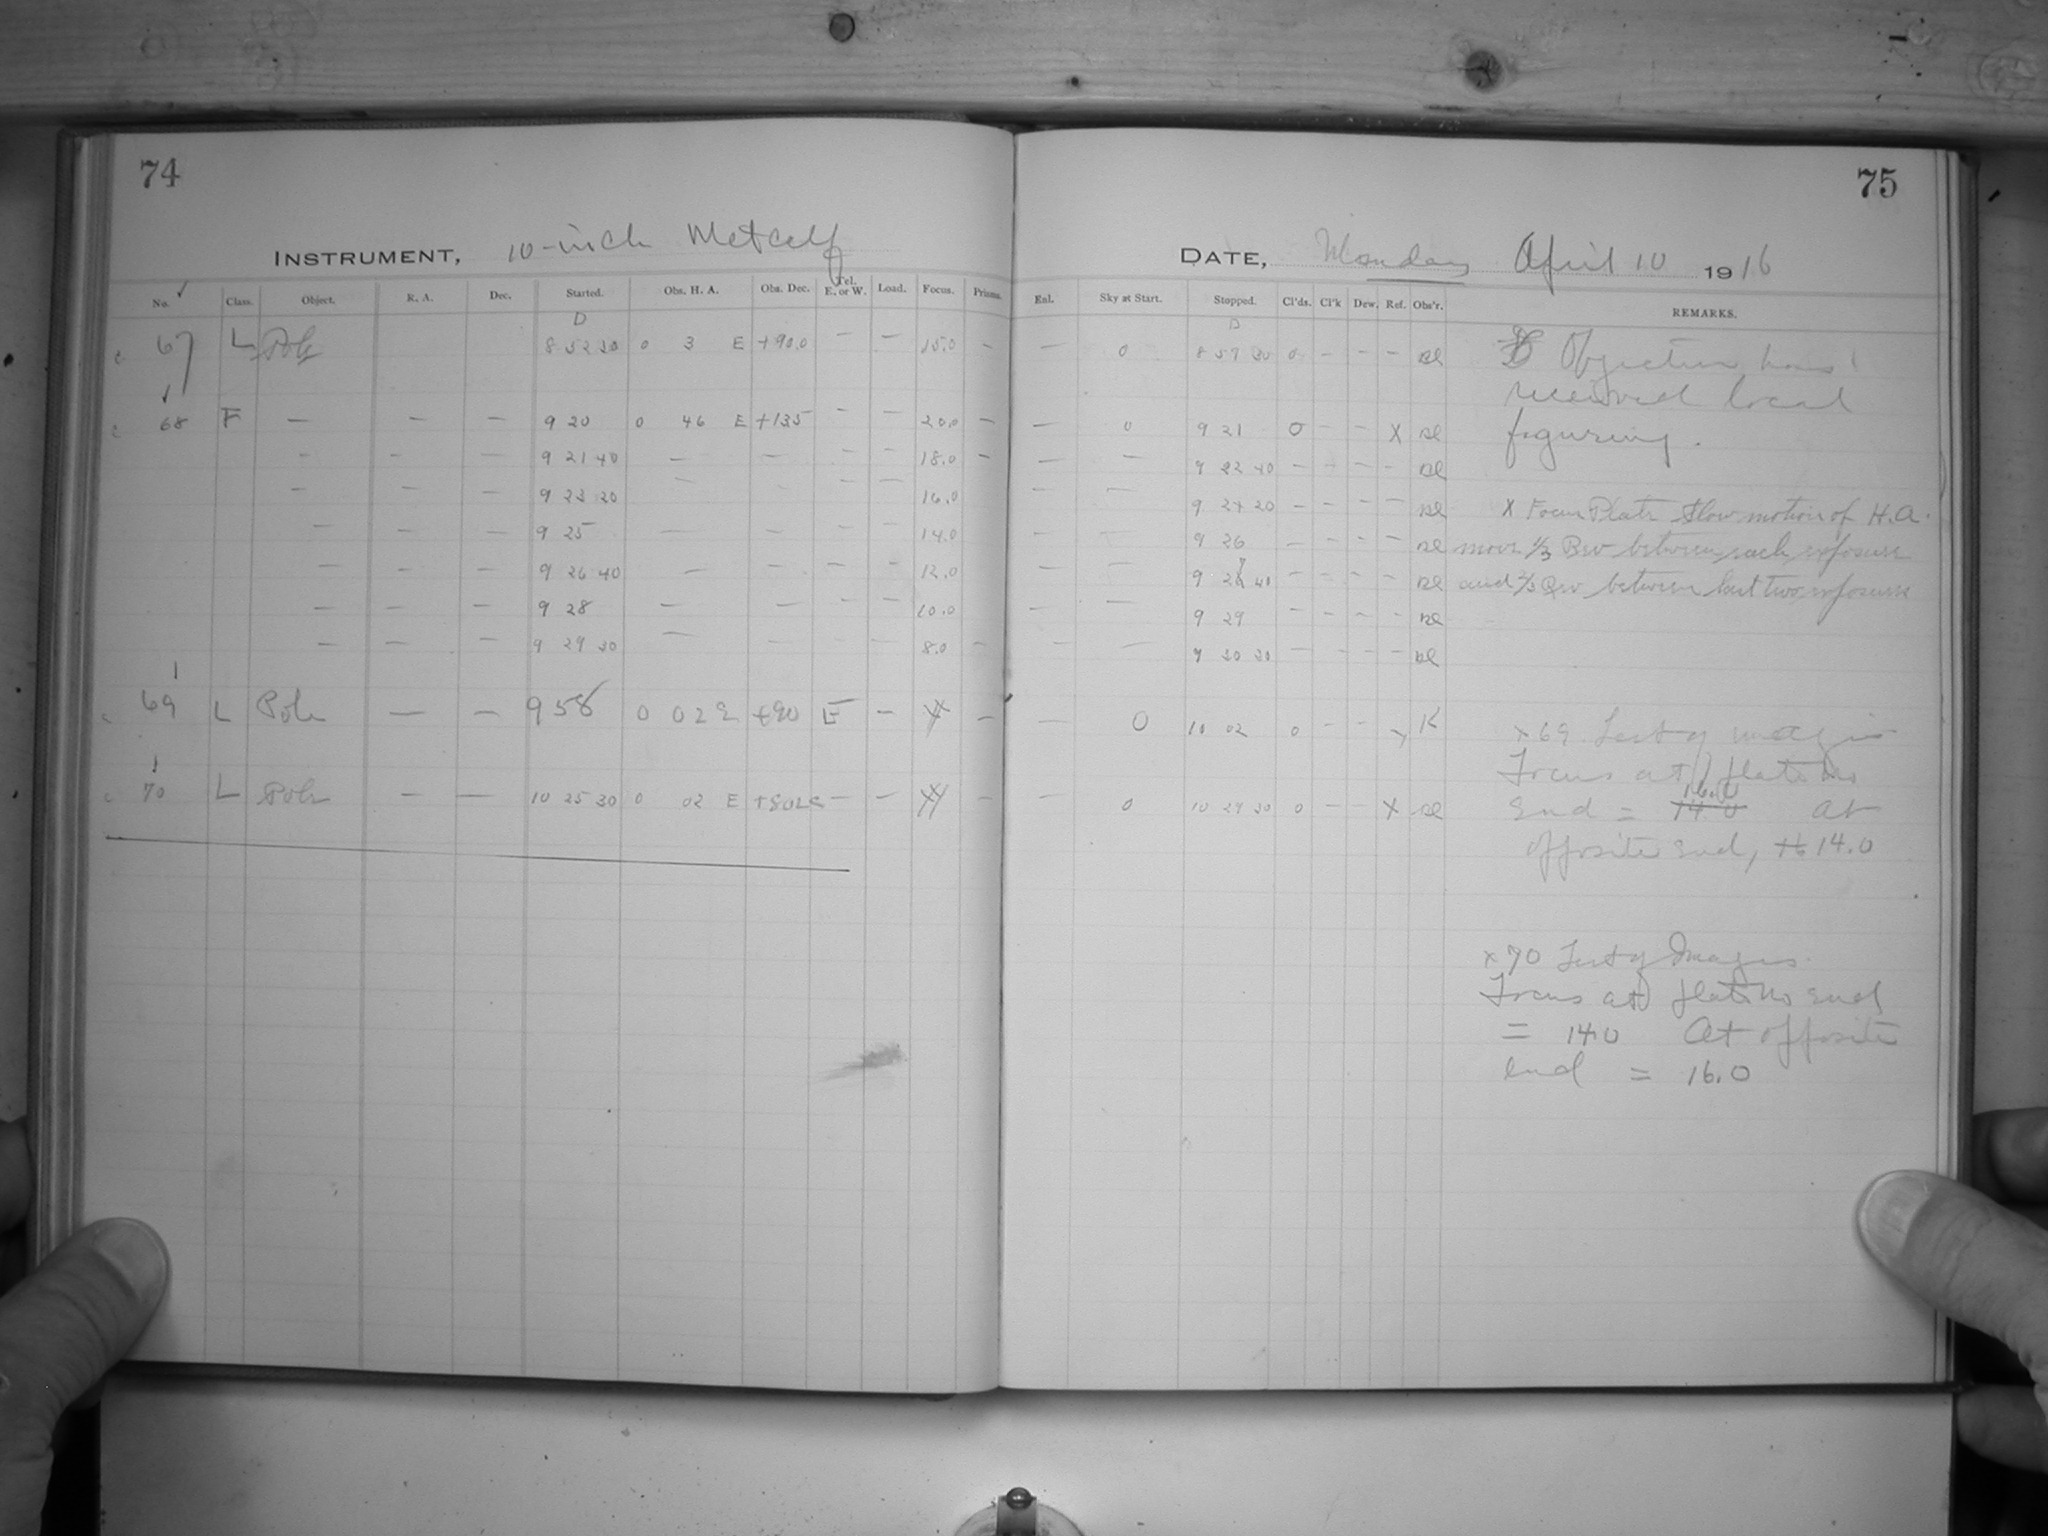 74
INSTRUMENT, 10-inch Metcalf
No. Class. Object. R. A. Dec. Started. Obs. H. A. Obs. Dec. Tel. E. or W. Load. Focus. Prisms.
D
67 L Pole 8 52 30 0 3 E +90.0 — — 15.0 —
68 F — — — 9 20 0 46 E +135 — — 20.0 —
— — — 9 21 40 — — — — 18.0 —
— — — 9 23 20 — — — 16.0
— — — 9 25 — — — — 14.0
— — — 9 26 40 — — — — 12.0
— — — 9 28 — — — — 10.0
— — — 9 29 30 — — — — 8.0 —
69 L Pole — — 9 58 0 02 E +90 E — X —
70 L Pole — — 10 25 30 0 02 E — — X —
75
DATE, Monday April 10 1916
Enl. Sky at Start. Stopped. Cl'ds. Cl'k Dew. Ref. Obs'r. REMARKS.
D
— 0 8 57 30 0 — — —
— 0 9 21 0 — — X
— — 9 22 40 — — — —
— — 9 24 20 — — — —
— — 9 26 — — — —
— — 9 27 40 — — — —
— — 9 29 — — — —
— — 9 30 30 — — — —
— 0 10 02 0 — — x K
— 0 10 29 30 0 — — X
Objective has
received local
figuring.
X Focus Plate Slow motion of H.A.
move 1/3 Rev between each exposure
and 2/3 Rev between last two exposures
x 69 Test of images
Focus at plate No
End = 16.0 At
opposite end, 14.0
x 70 Test of Images.
Focus at plate No end
= 14.0 At opposite
end = 16.0